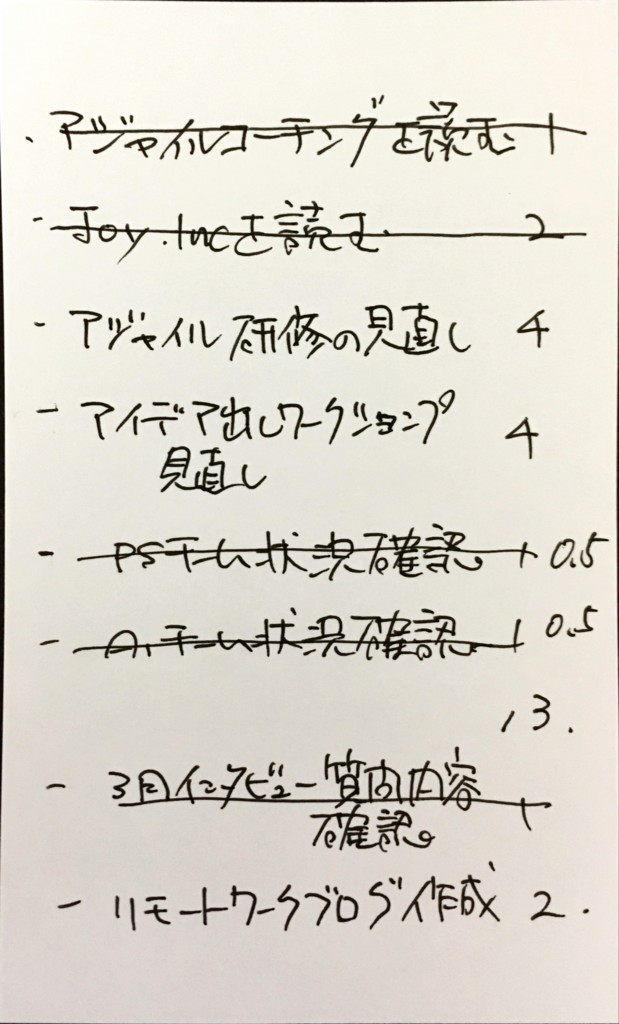 ・アジャイルコーチングを読む 1
- Joy.Incを読む 2
- アジャイル研修の見直し 4
- アイデア出しワークショップ 4
見直し
- PSチーム状況確認 1 0.5
- A.チーム状況確認 1 0.5
13.
- 3月インタビュー質問内容 1
確認
- リモートワークブログ作成 2.